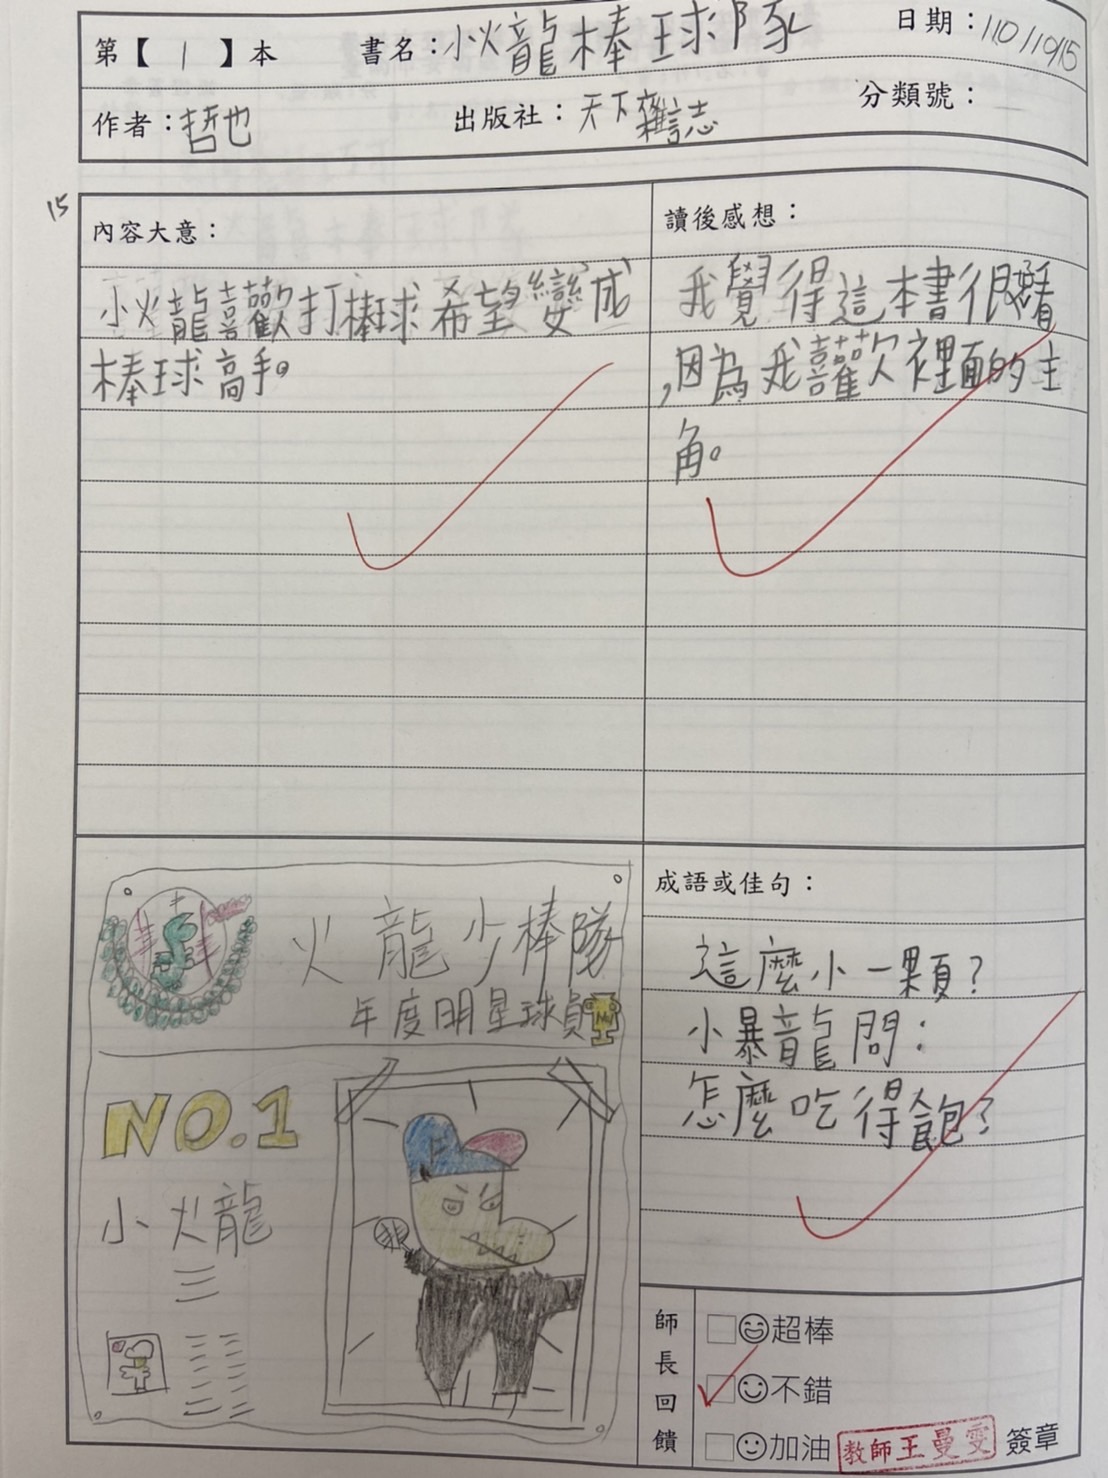 第【 1 】本
書名：小火龍棒球隊
日期：110/10/15
作者：哲也
出版社：天下雜誌
分類號：
15
內容大意：
小火龍喜歡打棒球希望變成
棒球高手。
讀後感想：
我覺得這本書很好看
,因為我喜歡裡面的主
角。
火龍少棒隊
年度明星球員
NO.1
小火龍
成語或佳句：
這麼小一顆?
小暴龍問：
怎麼吃得飽?
師長回饋
超棒
不錯
加油
教師王曼雯
簽章